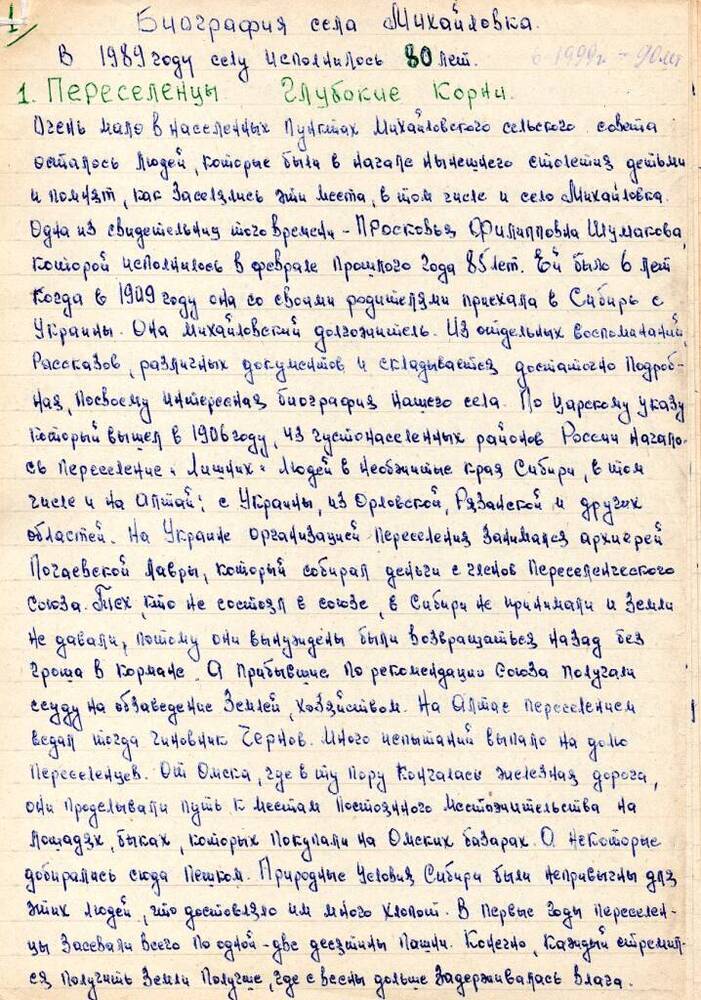 1
Биография села Михайловка.
В 1989 году селу исполнилось 80 лет. в 1999г. - 90 лет
1. Переселенцы. Глубокие Корни.
Очень мало в населенных пунктах Михайловского сельского совета
осталось людей, которые были в начале нынешнего столетия детьми
и помнят, как заселялись эти места, в том числе и село Михайловка.
Одна из свидетельниц того времени - Просковья Филипповна Шумакова,
которой исполнилось в феврале прошлого года 85 лет. Ей было 6 лет
когда в 1909 году она со своими родителями приехала в Сибирь с
Украины. Она михайловский долгожитель. Из отдельных воспоминаний,
рассказов, различных документов и складывается достаточно подроб-
ная, посвоему интересная биография нашего села. По царскому указу
который вышел в 1906 году, из густонаселенных районов России начало-
сь переселение "лишних" людей в необжитые края Сибири, в том
числе и на Алтай: с Украины, из Орловской, Рязанской и других
областей. На Украине организацией переселения занимался архиерей
Почаевской лавры, который собирал деньги с членов Переселенческого
союза. Тех, кто не состоял в союзе, в Сибири не принимали и земли
не давали, потому они вынуждены были возвращаться назад без
гроша в кормане. А прибывшие по рекомендации союза получали
ссуду на обзаведение землей, хозяйством. На Алтае переселением
ведал тогда чиновник Чернов. Много испытаний выпало на долю
переселенцев. От Омска, где в ту пору кончалась железная дорога,
они проделывали путь к местам постоянного местожительства на
лошадях, быках, которых покупали на Омских базарах. А некоторые
добирались сюда пешком. Природные условия Сибири были непривычны для
этих людей, что доставляло им много хлопот. В первые годы переселен-
цы засевали всего по одной-две десятины пашни. Конечно, каждый стремил-
ся получить земли получше, где с весны дольше задерживалась влага.